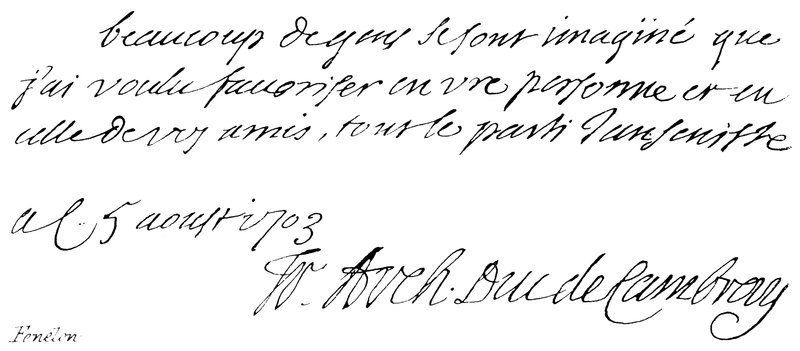 beaucoup de gens se sont imaginé que
j'ai voulu favoriser en vre personne et en
celle de vos amis, tout le parti Janseniste
a C. 5 aoust 1703
Fr. Arch. Duc de Cambray
Fenélon